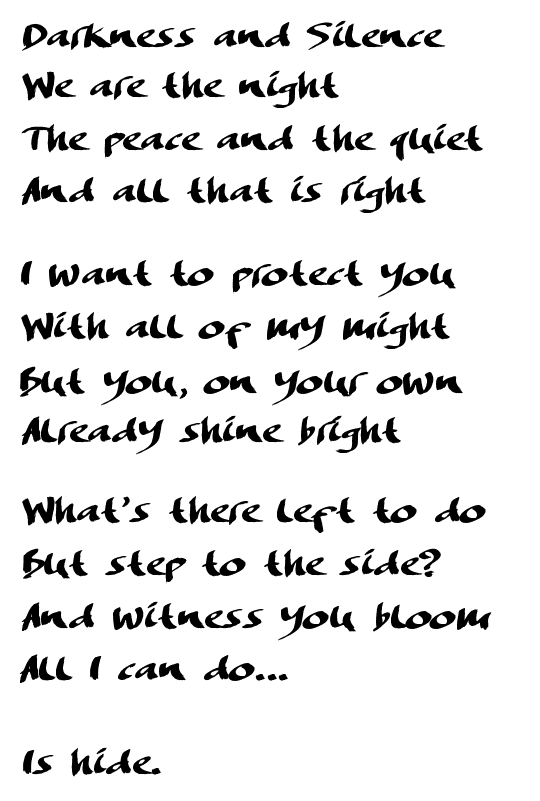 Darkness and Silence
We are the night
The peace and the quiet
And all that is right
I want to protect you
With all of my might
But you, on your own
Already shine bright
What's there left to do
But step to the side?
And witness you bloom
All I can do...
Is hide.